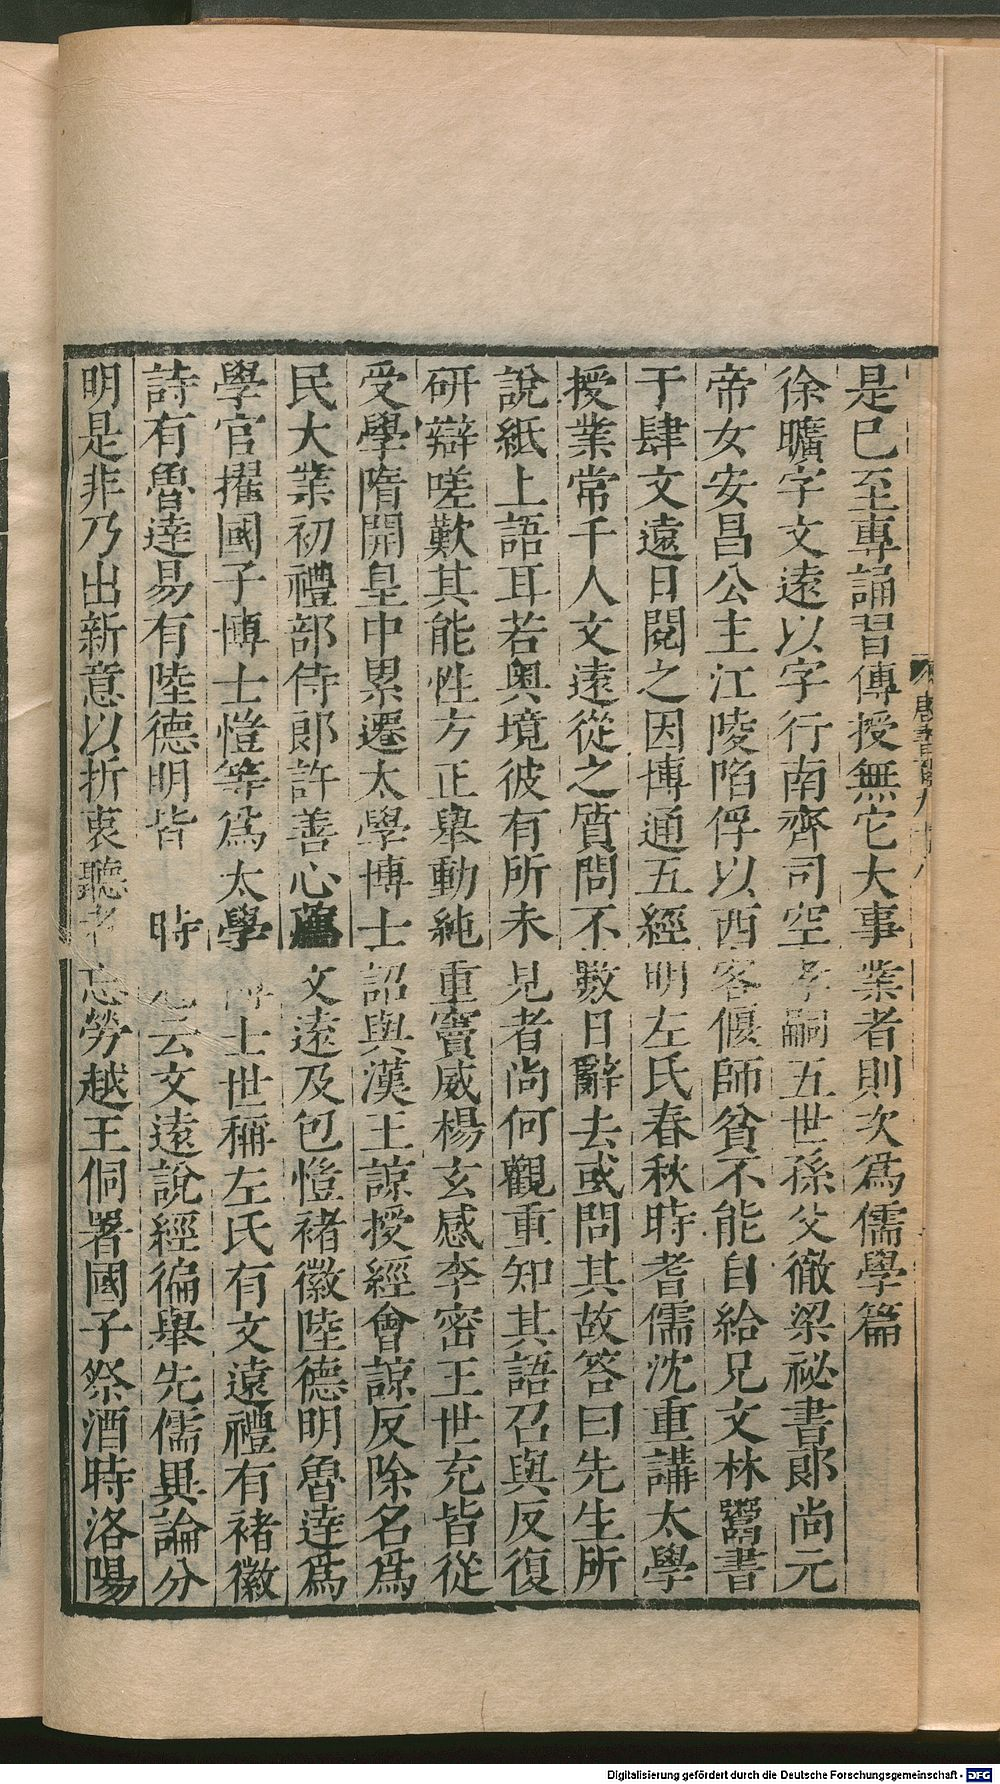 是已至專誦習傳授無它大事業者則次為儒學篇
徐曠字文遠以字行南齊司空孝嗣五世孫父徹梁祕書郎尚元
帝女安昌公主江陵陷俘以西客偃師貧不能自給兄文林鬻書
于肆文遠日閱之因博通五經明左氏春秋時耆儒沈重講太學
授業常千人文遠從之質問不數日辭去或問其故答曰先生所
說紙上語耳若奧境彼有所未見者尚何觀重知其語召與反復
研辯嗟歎其能性方正舉動純重竇威楊玄感李密王世充皆從
受學隋開皇中累遷太學博士詔與漢王諒授經會諒反除名爲
民大業初禮部侍郎許善心薦文遠及包愷褚徽陸德明魯達爲
學官擢國子博士愷等爲太學博士世稱左氏有文遠禮有褚徽
詩有魯達易有陸德明皆 時 云文遠說經徧舉先儒異論分
明是非乃出新意以折衷聽者忘勞越王侗署國子祭酒時洛陽
唐書
Digitalisierung gefördert durch die Deutsche Forschungsgemeinschaft - DFG